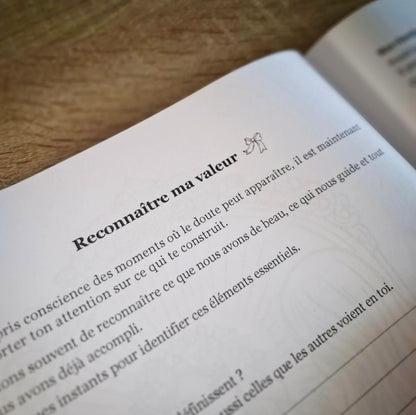 Reconnaître ma valeur
pris conscience des moments où le doute peut apparaître, il est maintenant
ton attention sur ce qui te construit.
souvent de reconnaître ce que nous avons de beau, ce qui nous guide et tout
avons déjà accompli.
instants pour identifier ces éléments essentiels.
?
celles que les autres voient en toi.